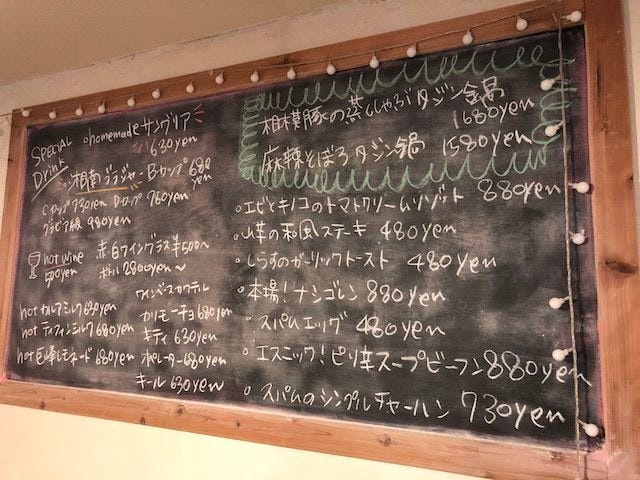 SPECIAL Drink
homemadeサングリア
630yen
湘南ブラジャー Bカップ 680yen
Cカップ 730yen Dカップ 780yen
グラビア級 980yen
hot wine
500yen
赤・白ワイングラス¥500~
ボトル 2800yen~
ワインベースカクテル
hotカルアミルク 630yen
カリモーチョ 680yen
hotティフィンミルク 680yen
キティ 630yen
hot巨峰レモネード 680yen
オペレーター 680yen
キール 630yen
相模豚の蒸ししゃぶタジン鍋
1680yen
麻辣そぼろタジン鍋 1580yen
エビとキノコのトマトクリームリゾット 880yen
山芋の和風ステーキ 480yen
しらすのガーリックトースト 480yen
本場!ナシゴレン 880yen
スパムエッグ 480yen
エスニック!ピリ辛スープビーフン 880yen
スパムのシンプルチャーハン 730yen